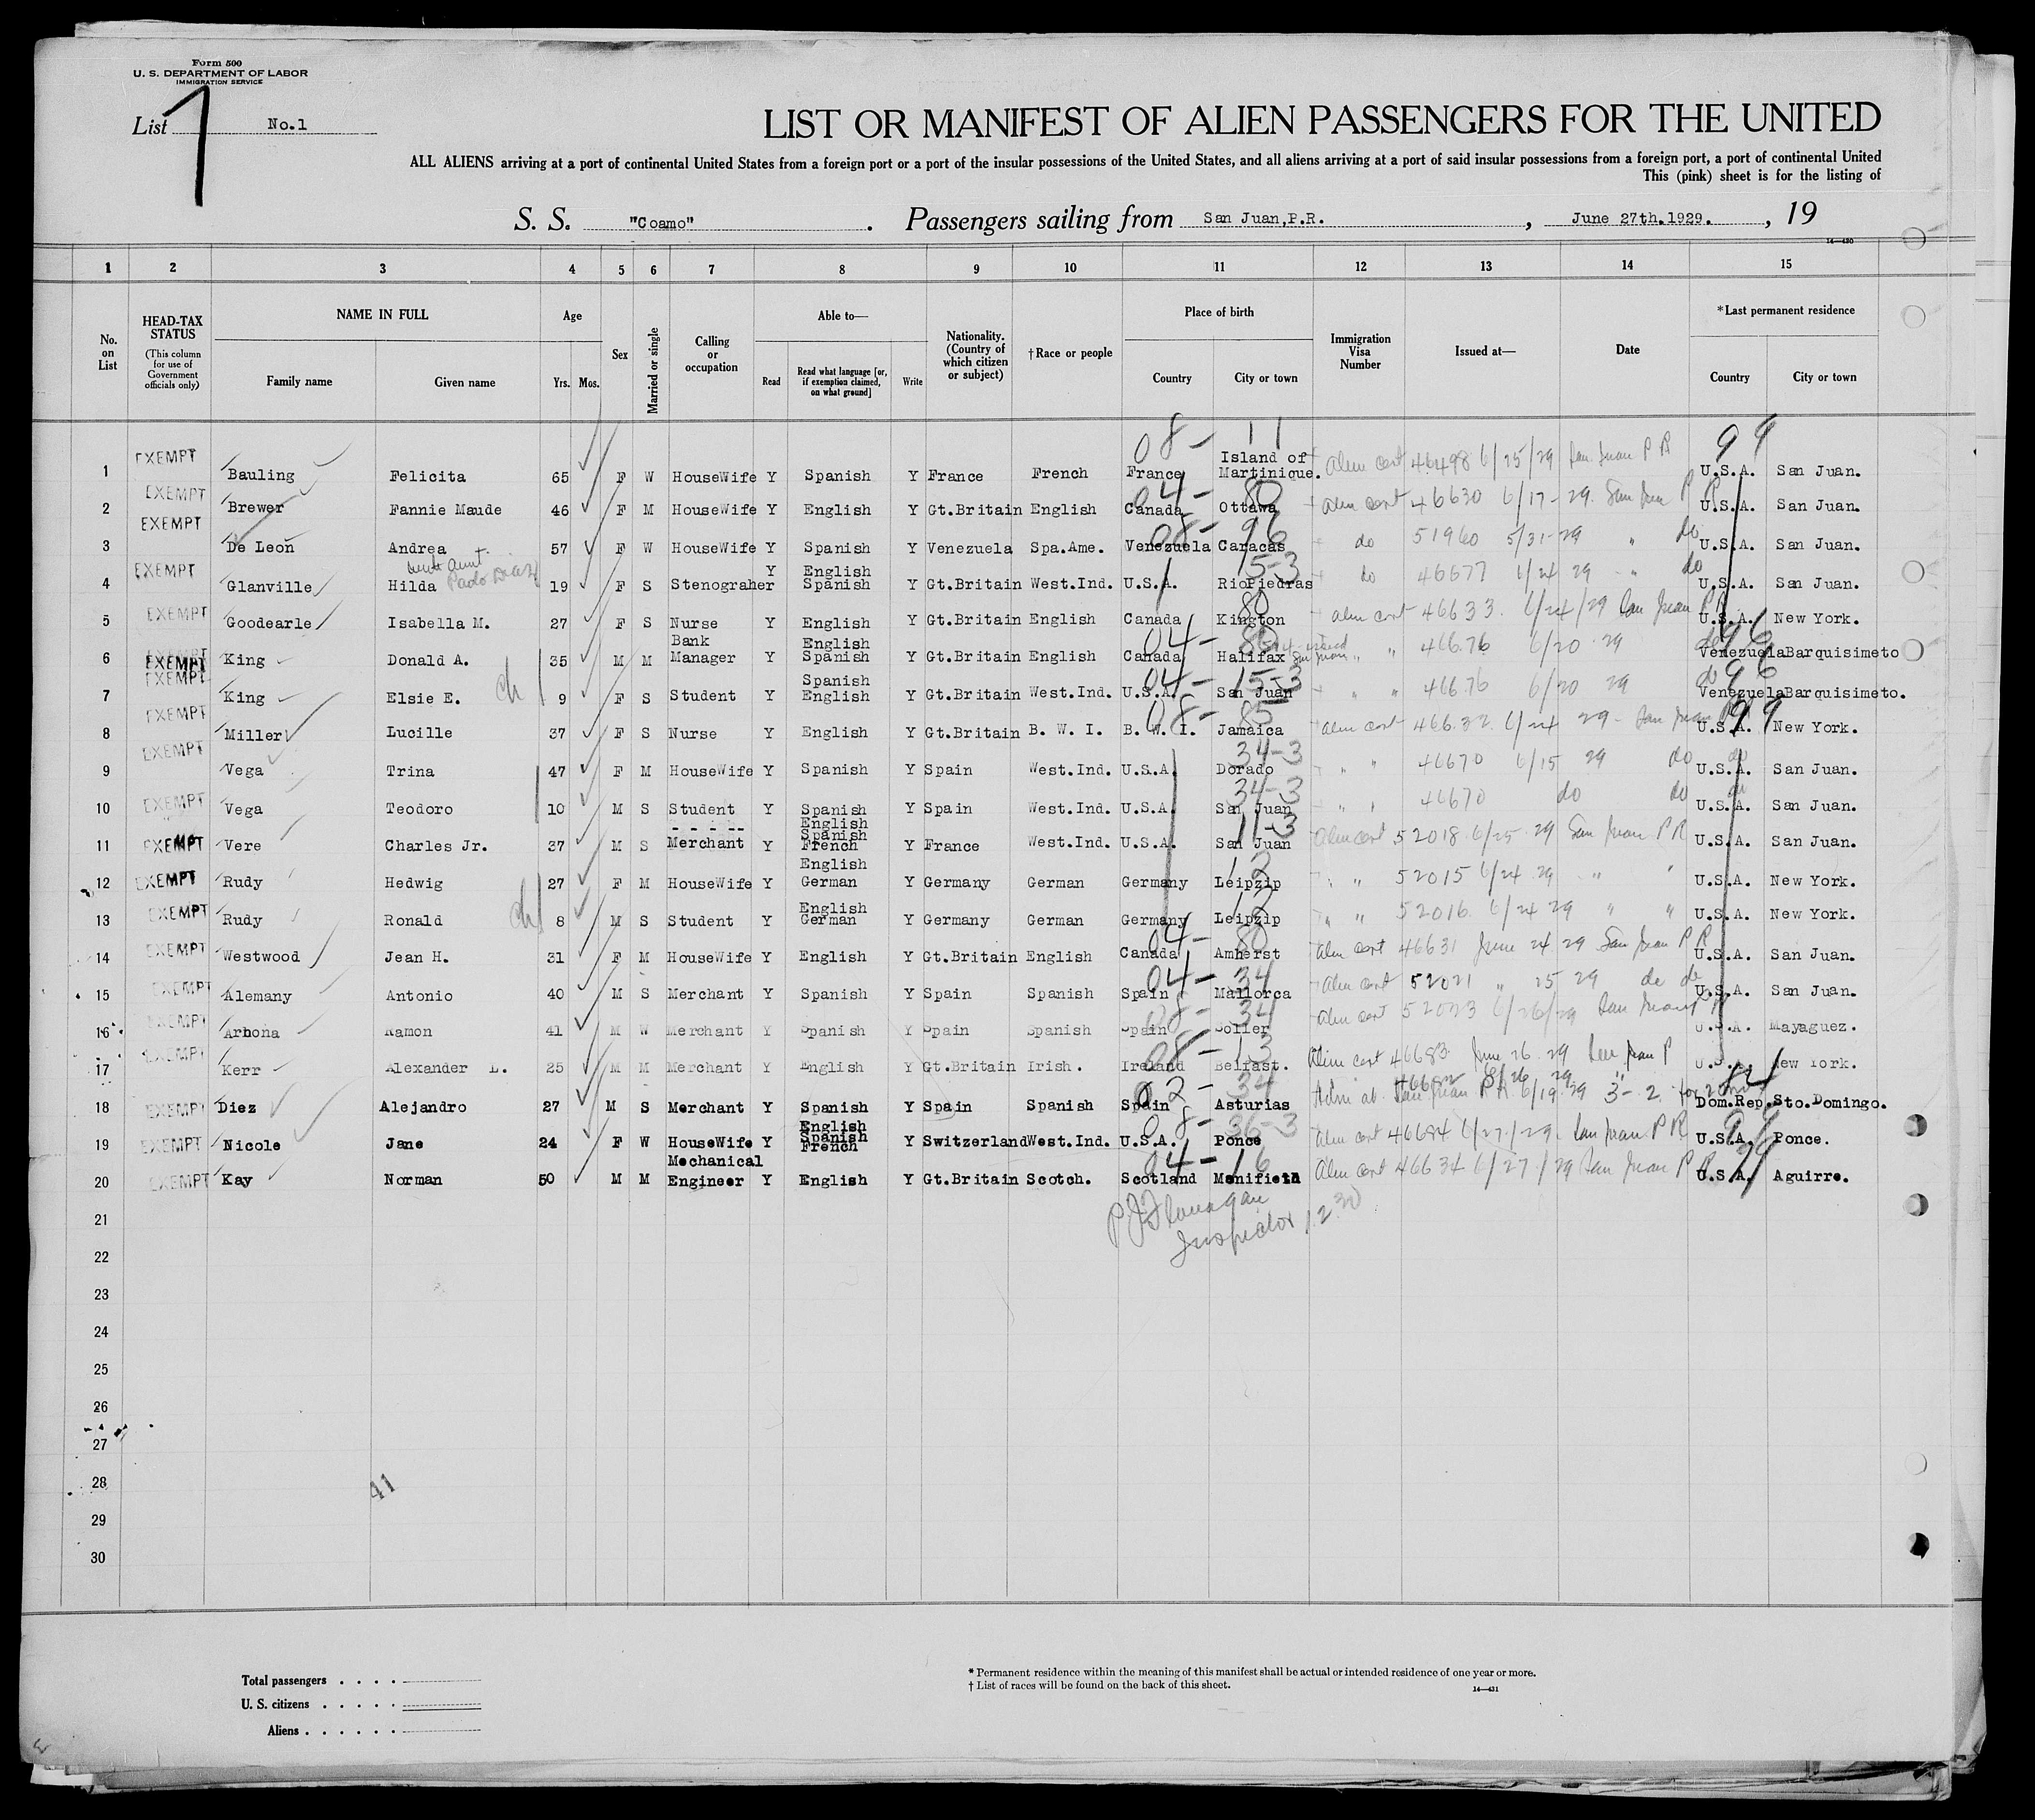 Form 500
U. S. DEPARTMENT OF LABOR
IMMIGRATION SERVICE
List No.1
1
LIST OR MANIFEST OF ALIEN PASSENGERS FOR THE UNITED
ALL ALIENS arriving at a port of continental United States from a foreign port or a port of the insular possessions of the United States, and all aliens arriving at a port of said insular possessions from a foreign port, a port of continental United
This (pink) sheet is for the listing of
S. S. "Coamo". Passengers sailing from San Juan,P.R., June 27th.1929., 19
14—430
1 2 3 4 5 6 7 8 9 10 11 12 13 14 15
No. on List
HEAD-TAX STATUS (This column for use of Government officials only)
NAME IN FULL Family name Given name
Age Yrs. Mos.
Sex
Married or single
Calling or occupation
Able to— Read Read what language [or, if exemption claimed, on what ground] Write
Nationality. (Country of which citizen or subject)
†Race or people
Place of birth Country City or town
Immigration Visa Number
Issued at—
Date
*Last permanent residence Country City or town
08- 11 99
1 EXEMPT Bauling Felicita 65 F W HouseWife Y Spanish Y France French France Island of Martinique. Alien cert 46498 6/25/29 San Juan P R U.S.A. San Juan.
2 EXEMPT Brewer Fannie Maude 46 F M HouseWife Y English Y Gt.Britain English Canada Ottawa Alien cert 46630 6/17-29. San Juan P R U.S.A. San Juan.
3 EXEMPT De Leon Andrea 57 F W HouseWife Y Spanish Y Venezuela Spa.Ame. Venezuela Caracas do 51960 5/31-29 " do U.S.A. San Juan.
4 EXEMPT Glanville Hilda 19 F S Stenograher Y English Spanish Y Gt.Britain West.Ind. U.S.A. RioPiedras do 46677 6/24 29 " do U.S.A. San Juan.
5 EXEMPT Goodearle Isabella M. 27 F S Nurse Y English Y Gt.Britain English Canada Kington Alien cert 46633. 6/24/29 San Juan P R U.S.A. New York.
6 EXEMPT King Donald A. 35 M M Bank Manager Y English Spanish Y Gt.Britain English Canada Halifax " " 46676 6/20 29 Venezuela Barquisimeto
7 EXEMPT King Elsie E. ch 9 F S Student Y Spanish English Y Gt.Britain West.Ind. U.S.A. San Juan " " 46676 6/20 29 Venezuela Barquisimeto.
8 EXEMPT Miller Lucille 37 F S Nurse Y English Y Gt.Britain B. W. I. B. W. I. Jamaica Alien cert 46632 6/24 29- San Juan U.S.A. New York.
9 EXEMPT Vega Trina 47 F M HouseWife Y Spanish Y Spain West.Ind. U.S.A. Dorado " " 46670 6/15 29 do U.S.A. San Juan.
10 EXEMPT Vega Teodoro 10 M S Student Y Spanish English Y Spain West.Ind. U.S.A. San Juan " " 46670 do do U.S.A. San Juan.
11 EXEMPT Vere Charles Jr. 37 M S Merchant Y Spanish French Y France West.Ind. U.S.A. San Juan Alien cert 52018 6/25 29 San Juan P R U.S.A. San Juan.
12 EXEMPT Rudy Hedwig 27 F M HouseWife Y English German Y Germany German Germany Leipzip " " 52015 6/24 29 " " U.S.A. New York.
13 EXEMPT Rudy Ronald ch 8 M S Student Y English German Y Germany German Germany Leipzip " " 52016 6/24 29 " " U.S.A. New York.
14 EXEMPT Westwood Jean H. 31 F M HouseWife Y English Y Gt.Britain English Canada Amherst Alien cert 46631 June 24 29 San Juan P R U.S.A. San Juan.
15 EXEMPT Alemany Antonio 40 M S Merchant Y Spanish Y Spain Spanish Spain Mallorca Alien cert 52021 " 25 29 do do U.S.A. San Juan.
16 EXEMPT Arbona Ramon 41 M W Merchant Y Spanish Y Spain Spanish Spain Soller Alien cert 52023 6/26/29 San Juan U.S.A. Mayaguez.
17 EXEMPT Kerr Alexander L. 25 M M Merchant Y English Y Gt.Britain Irish. Ireland Belfast. Alien cert 46683 June 26 29 San Juan P U.S.A. New York.
18 EXEMPT Diez Alejandro 27 M S Merchant Y Spanish Y Spain Spanish Spain Asturias San Juan P.R. 6/19 29 3-2 Dom.Rep. Sto.Domingo.
19 EXEMPT Nicole Jane 24 F W HouseWife Y English Spanish French Y Switzerland West.Ind. U.S.A. Ponce Alien cert 46684 6/27/29. San Juan P R U.S.A. Ponce.
20 EXEMPT Kay Norman 50 M M Mechanical Engineer Y English Y Gt.Britain Scotch. Scotland Monifieth Alien cert 46634 6/27/29 San Juan P R U.S.A. Aguirre.
P J Flanagan
Inspector
21
22
23
24
25
26
27
28
41
29
30
Total passengers . . . .
U. S. citizens . . . . .
Aliens . . . . . .
* Permanent residence within the meaning of this manifest shall be actual or intended residence of one year or more.
† List of races will be found on the back of this sheet.
14—431